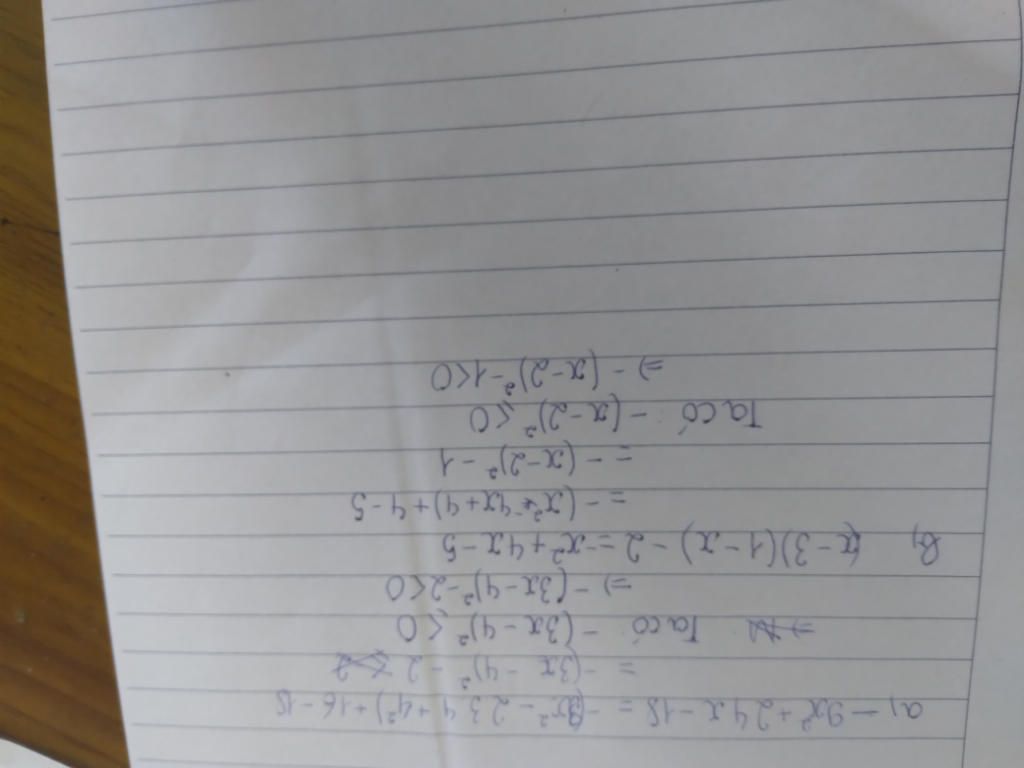 a, -9x² + 24x - 18 = -(3x² - 2 3 4 + 4²) + 16 - 18
= -(3x - 4)² - 2
⇒ Ta có -(3x - 4)² ≤ 0
⇒ -(3x - 4)² - 2 < 0
b, (x - 3)(1 - x) - 2 = -x² + 4x - 5
= -(x² - 4x + 4) + 4 - 5
= -(x - 2)² - 1
Ta có: -(x - 2)² ≤ 0
⇒ -(x - 2)² - 1 < 0